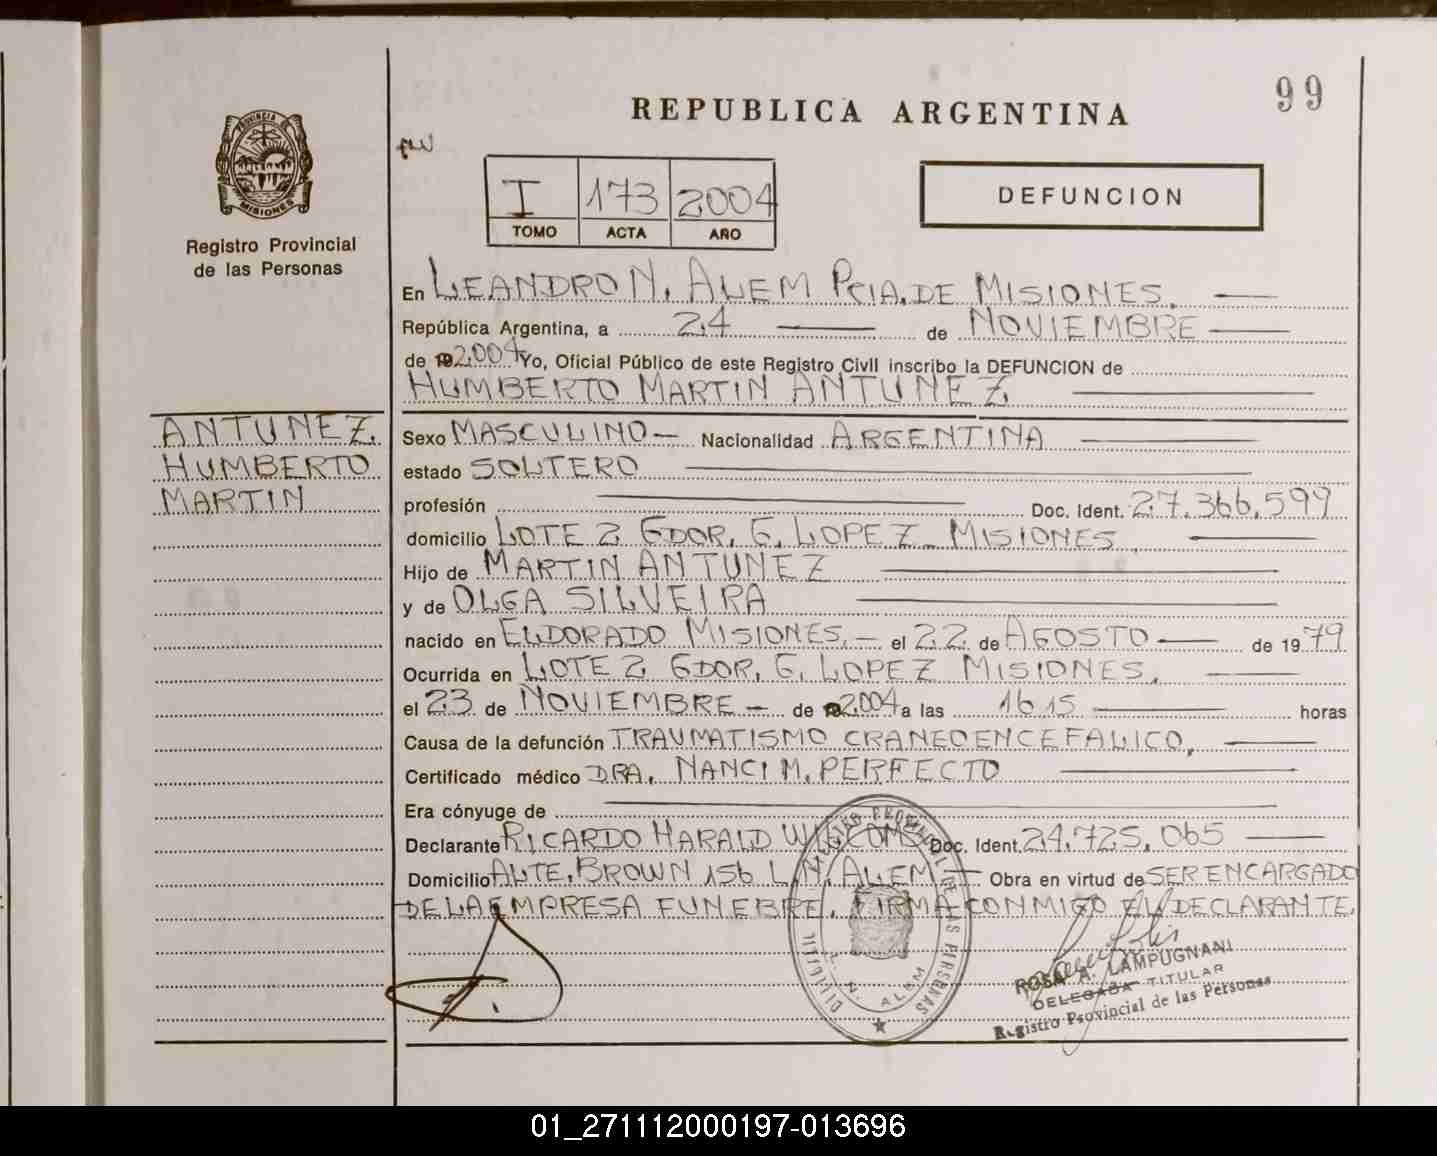 99
REPUBLICA ARGENTINA
PROVINCIA DE
MISIONES
Registro Provincial
de las Personas
I 173 2004
TOMO ACTA AÑO
DEFUNCION
En LEANDRO N. ALEM PCIA. DE MISIONES.
República Argentina, a 24 de NOVIEMBRE
de 2.004 Yo, Oficial Público de este Registro Civil inscribo la DEFUNCION de
HUMBERTO MARTIN ANTUNEZ
ANTUNEZ
HUMBERTO
MARTIN
Sexo MASCULINO — Nacionalidad ARGENTINA
estado SOLTERO
profesión Doc. Ident. 27.366.599
domicilio LOTE 2 GDOR. G. LOPEZ - MISIONES
Hijo de MARTIN ANTUNEZ
y de OLGA SILVEIRA
nacido en ELDORADO MISIONES. — el 22 de AGOSTO de 1979
Ocurrida en LOTE 2 GDOR. G. LOPEZ MISIONES.
el 23 de NOVIEMBRE — de 2.004 a las 16 15 horas
Causa de la defunción TRAUMATISMO CRANEOENCEFALICO.
Certificado médico DRA. NANCI M. PERFECTO
Era cónyuge de
Declarante RICARDO HARALD Doc. Ident. 24.725.065
Domicilio ALTE. BROWN 156 L.N. ALEM — Obra en virtud de SER ENCARGADO
DE LA EMPRESA FUNEBRE. FIRMA CONMIGO EL DECLARANTE.
REGISTRO PROVINCIAL DE LAS PERSONAS
L. N. ALEM
ROSA A. LAMPUGNANI
DELEGADA TITULAR
Registro Provincial de las Personas
01_271112000197-013696